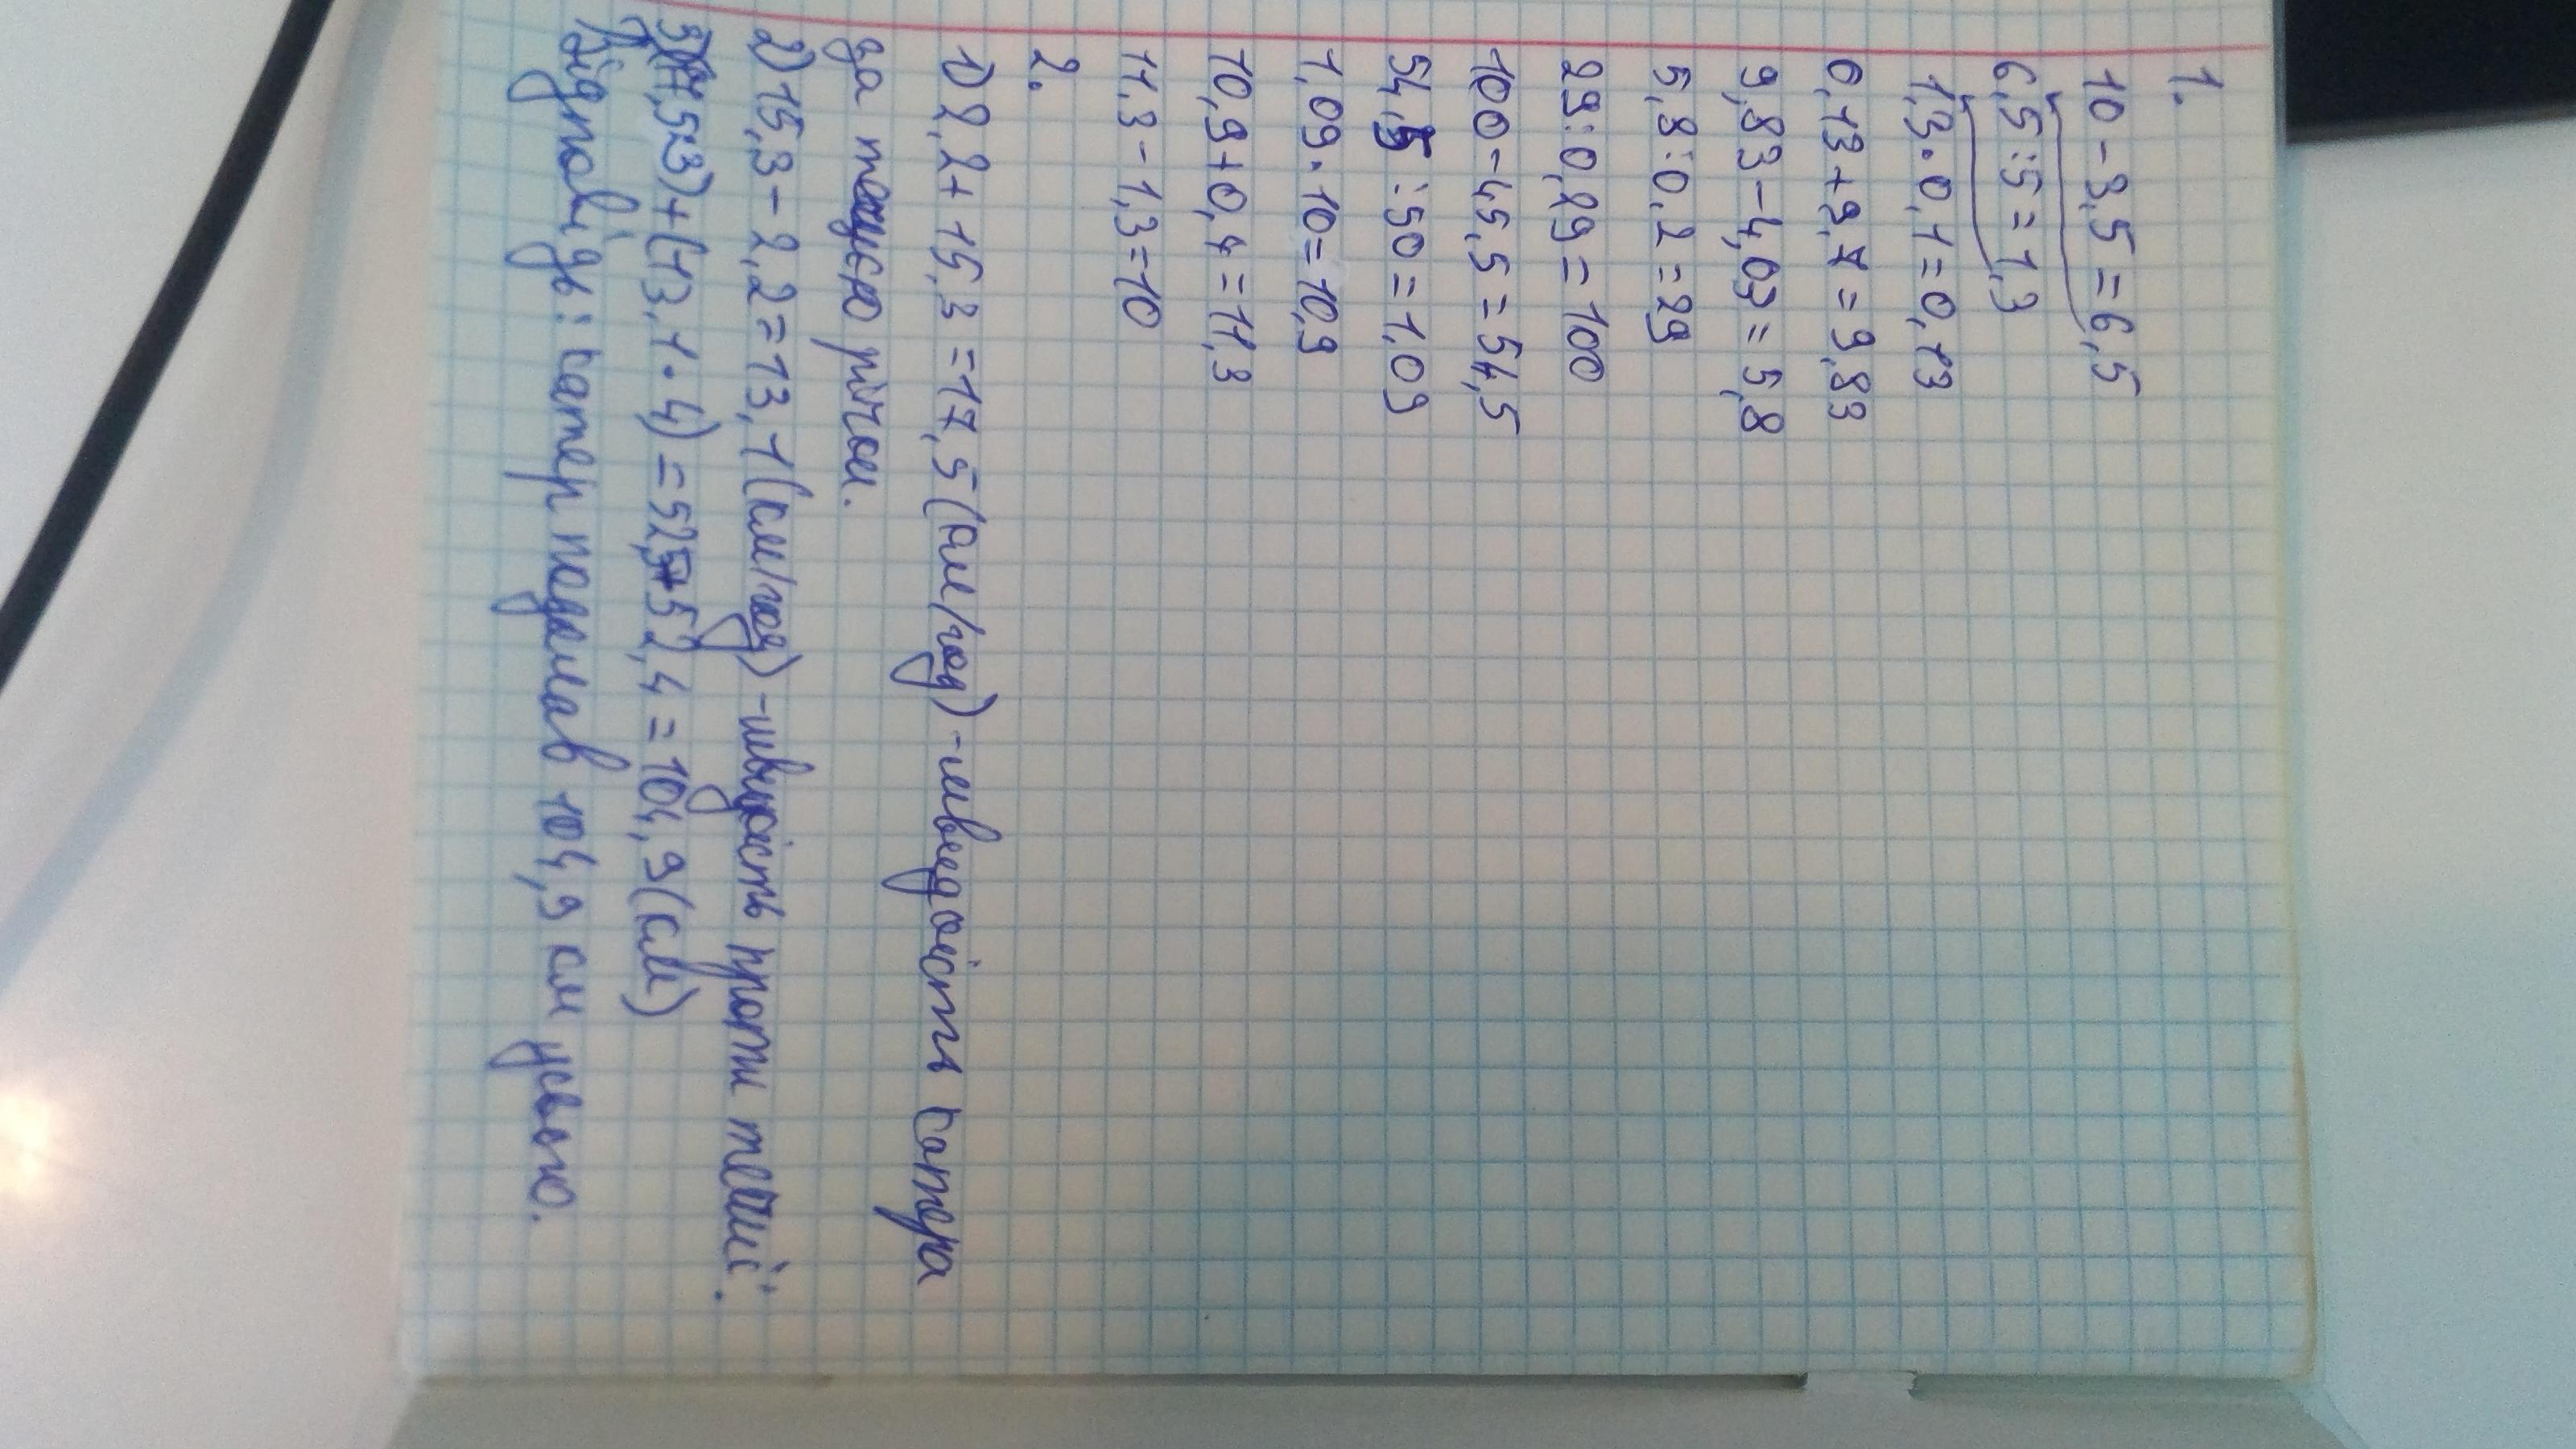 1.
10-3,5=6,5
6,5:5=1,3
1,3·0,1=0,13
0,13+9,7=9,83
9,83-4,03=5,8
5,8:0,2=29
29:0,29=100
100-45,5=54,5
54,5:50=1,09
1,09·10=10,9
10,9+0,4=11,3
11,3-1,3=10
2.
1) 2,2+15,3=17,5(км/год)-швидкість катера
за течією річки.
2) 15,3-2,2=13,1(км/год)-швидкість проти течії.
3)(17,5·3)+(13,1·4)=52,5+52,4=104,9(км)
Відповідь: катер подолав 104,9 км усього.